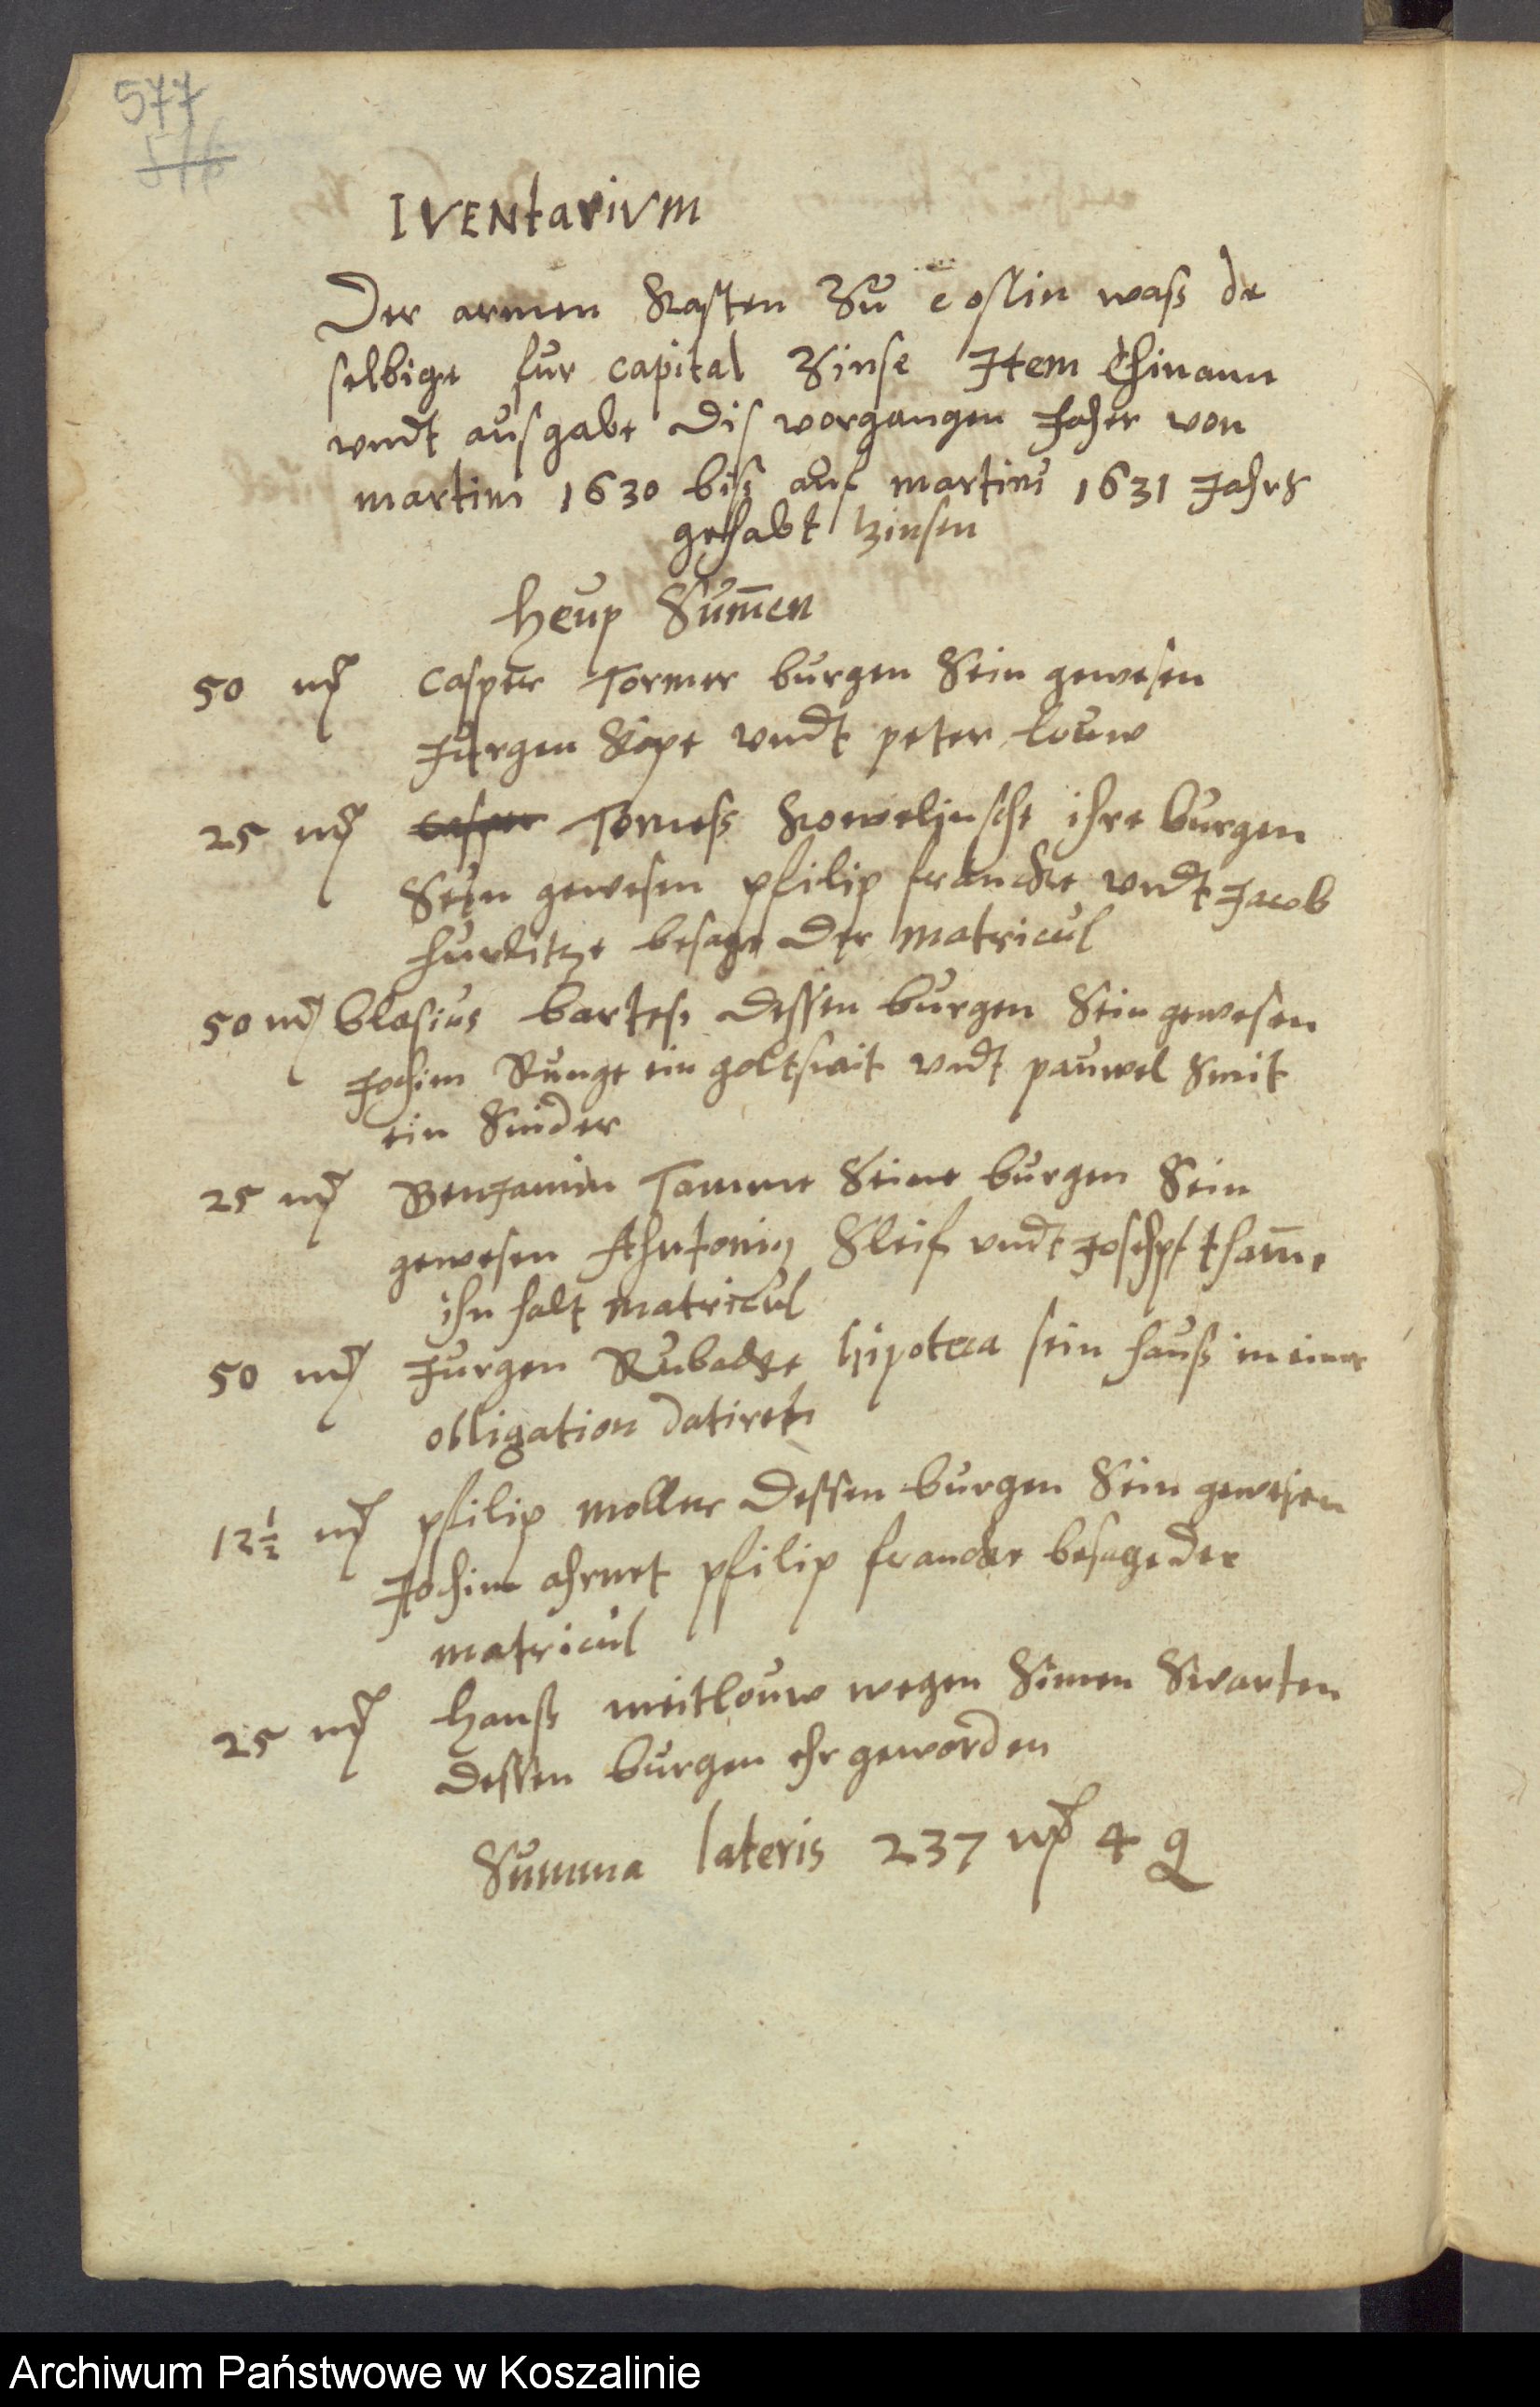 577
576
IVENtariVM
Der armen Kasten Zu Coslin waß de
selbige fur Capital Zinse Item Ehinam
vndt außgabe dis vorgangen Jaher von
martini 1630 biß auf martini 1631 Jahrs
gehabt Zinsen
Heup Summen
50 mß Casper Tormer burgen Sein gewesen
Jurgen Kope vndt peter louw
25 mß Casper Torness Kowelinsche ihre burgen
Sein gewesen philip francke vndt Jacob
hurlitze besage Der Matricul
50 mß blasius bartes dessen burgen Sein gewesen
Jochim Runge ein goltsmit vndt pauwel Smit
ein Snider
25 mß Benjamin Tamme Seine burgen Sein
gewesen Ahntonius Sleif vndt Joseph thame
ihn halt Matricul
50 mß Jurgen Rubacke hipoteca sein hauß in einer
obligation datiret
12½ mß philip Moller dessen burgen Sein gewesen
Jochim ahrnet philip francke besage der
Matricul
25 mß Hanß meitlouw wegen Simen Swarten
dessen burgen ehr geworden
Summa lateris 237 mß 4 g
Archiwum Państwowe w Koszalinie